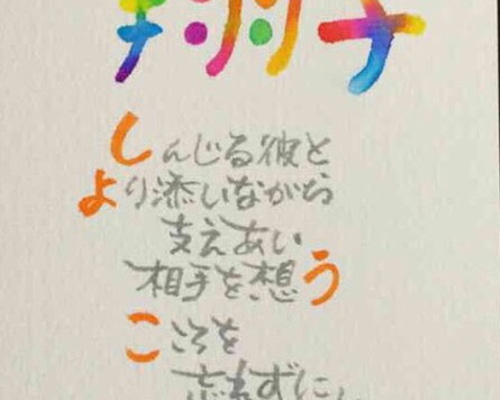 翔子
しんじる彼と
より添いながら
支えあい
相手を想う
こころを
忘れずに